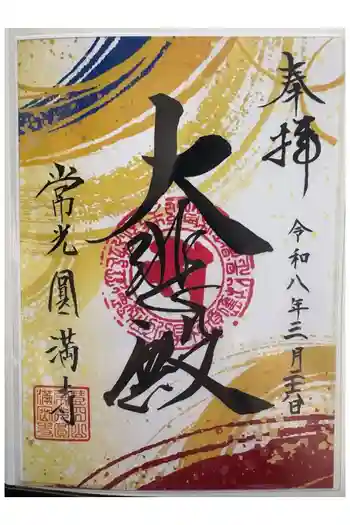 奉拝
令和八年三月二十日
大悲殿
常光圓満寺